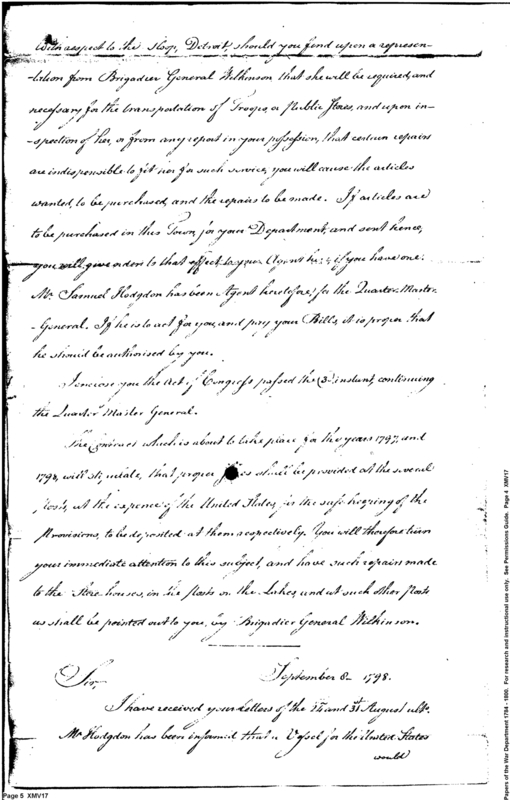 With respect to the Sloop, Detroit, should you find upon a represen-
-tation from Brigadier General Wilkinson that she will be required, and
necessary for the transportation of Troops, or Public Stores, and upon in-
-spection of her, or from any report in your possession, that certain repairs
are indispensible to fit her for such service, you will cause the articles
wanted, to be purchased, and the repairs to be made. If articles are
to be purchased in this Town, for your Department, and sent hence,
you will give orders to that effect to your Agent here, if you have one.
Mr. Samuel Hodgdon has been Agent heretofore, for the Quarter Master
-General. If he is to act for you, and pay your Bills, it is proper that
he should be authorised by you.
I enclose you the Act of Congress passed the 3d instant, continuing
the Quarter Master General.
The Contract which is about to take place for the years 1797, and
1798, will stipulate, that proper shall be provided at the several
posts, at the expence of the United States, for the safe keeping of the
Provisions, to be deposited at them respectively. You will therefore turn
your immediate attention to this subject, and have such repairs made
to the Store houses, in the Posts on the Lakes, and at such other Posts
as shall be pointed out to you, by Brigadier General Wilkinson.
September 8 1798.
Sir,
I have received your Letters of the and 31st August ulto.
Mr Hodgdon has been informed that a Vessel for the United States
would
Page 5 XMV17
Papers of the War Department 1784 - 1800. For research and instructional use only. See Permissions Guide. Page 4 XMV17